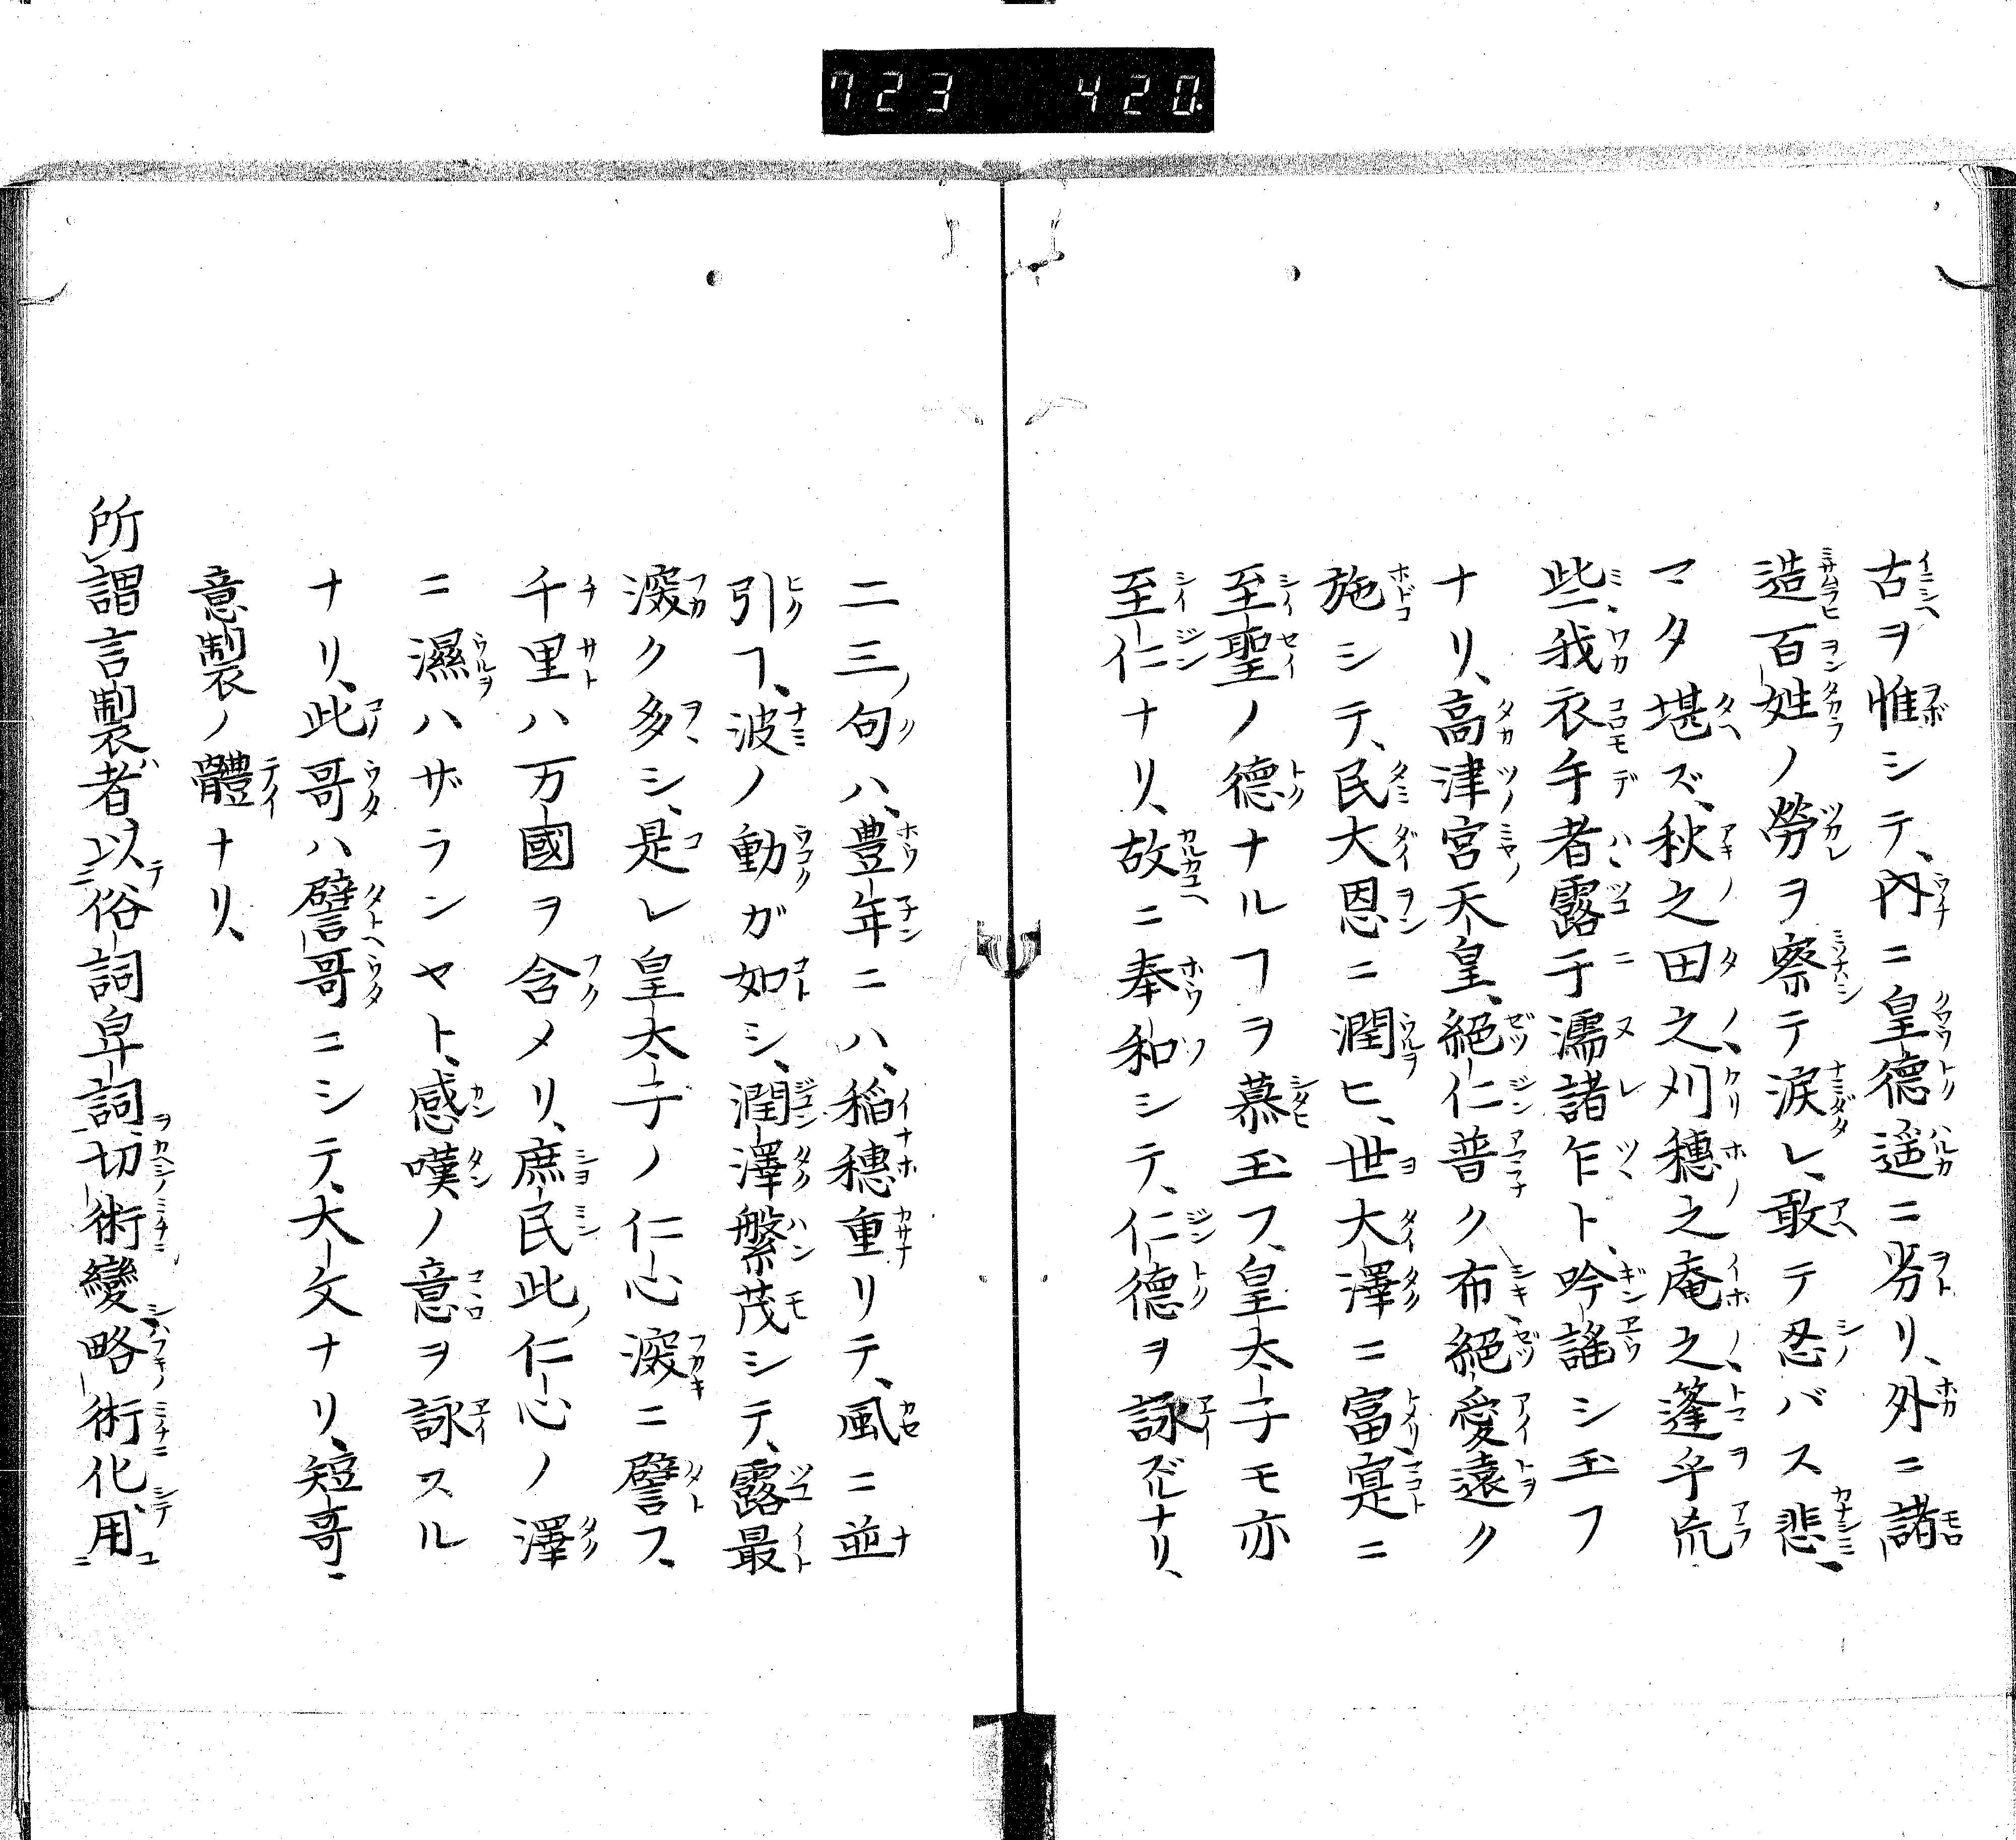 723 420.
古ヲ惟シテ、內ニ皇德遥ニ劣リ、外ニ諸
造百姓ノ勞ヲ察テ淚レ、敢テ忍バス悲、
マタ堪ズ、秋之田之刈穗之庵之、蓬乎荒
些、我衣手者露于濡諸乍ト、吟謠シ玉フ
ナリ、高津宮天皇、絕仁普ク布、絕愛遠ク
施シテ、民大恩ニ潤ヒ、世大澤ニ富寔ニ
至聖ノ德ナルヿヲ慕玉フ、皇太子モ亦
至仁ナリ、故ニ奉和シテ、仁德ヲ詠ズルナリ、
二三ノ句ハ、豊年ニハ、稲穗重リテ、風ニ並
引ヿ、波ノ動ガ如シ、潤澤繁茂シテ、露最
深ク多シ、是レ皇太子ノ仁心深ニ譬フ、
千里ハ万國ヲ含メリ、庶民此ノ仁心ノ澤
ニ濕ハザランヤト、感嘆ノ意ヲ詠スル
ナリ、此哥ハ譬哥ニシテ、大文ナリ、短哥、
意製ノ體ナリ、
所謂言製者以俗詞卑詞、切術變略術化、用